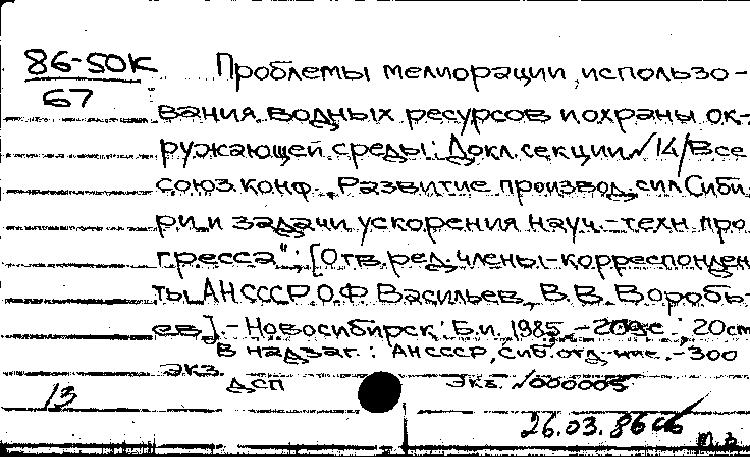 86-50К
67
Проблемы мелиорации, использо-
вания водных ресурсов и охраны ок-
ружающей среды: Докл. секции №14/Все
союз. конф. "Развитие производ. сил Сиби
ри и задачи ускорения науч.-техн. про
гресса"; [Отв. ред. члены-корреспонден
ты АН СССР О.Ф. Васильев, В.В. Воробь-
ев].- Новосибирск: Б.и. 1985.- с.; 20см
В надзаг.: АН СССР, Сиб. отд-ние.-300
экз.
ДСП экз. №000005
13
26.03.86
т. в.